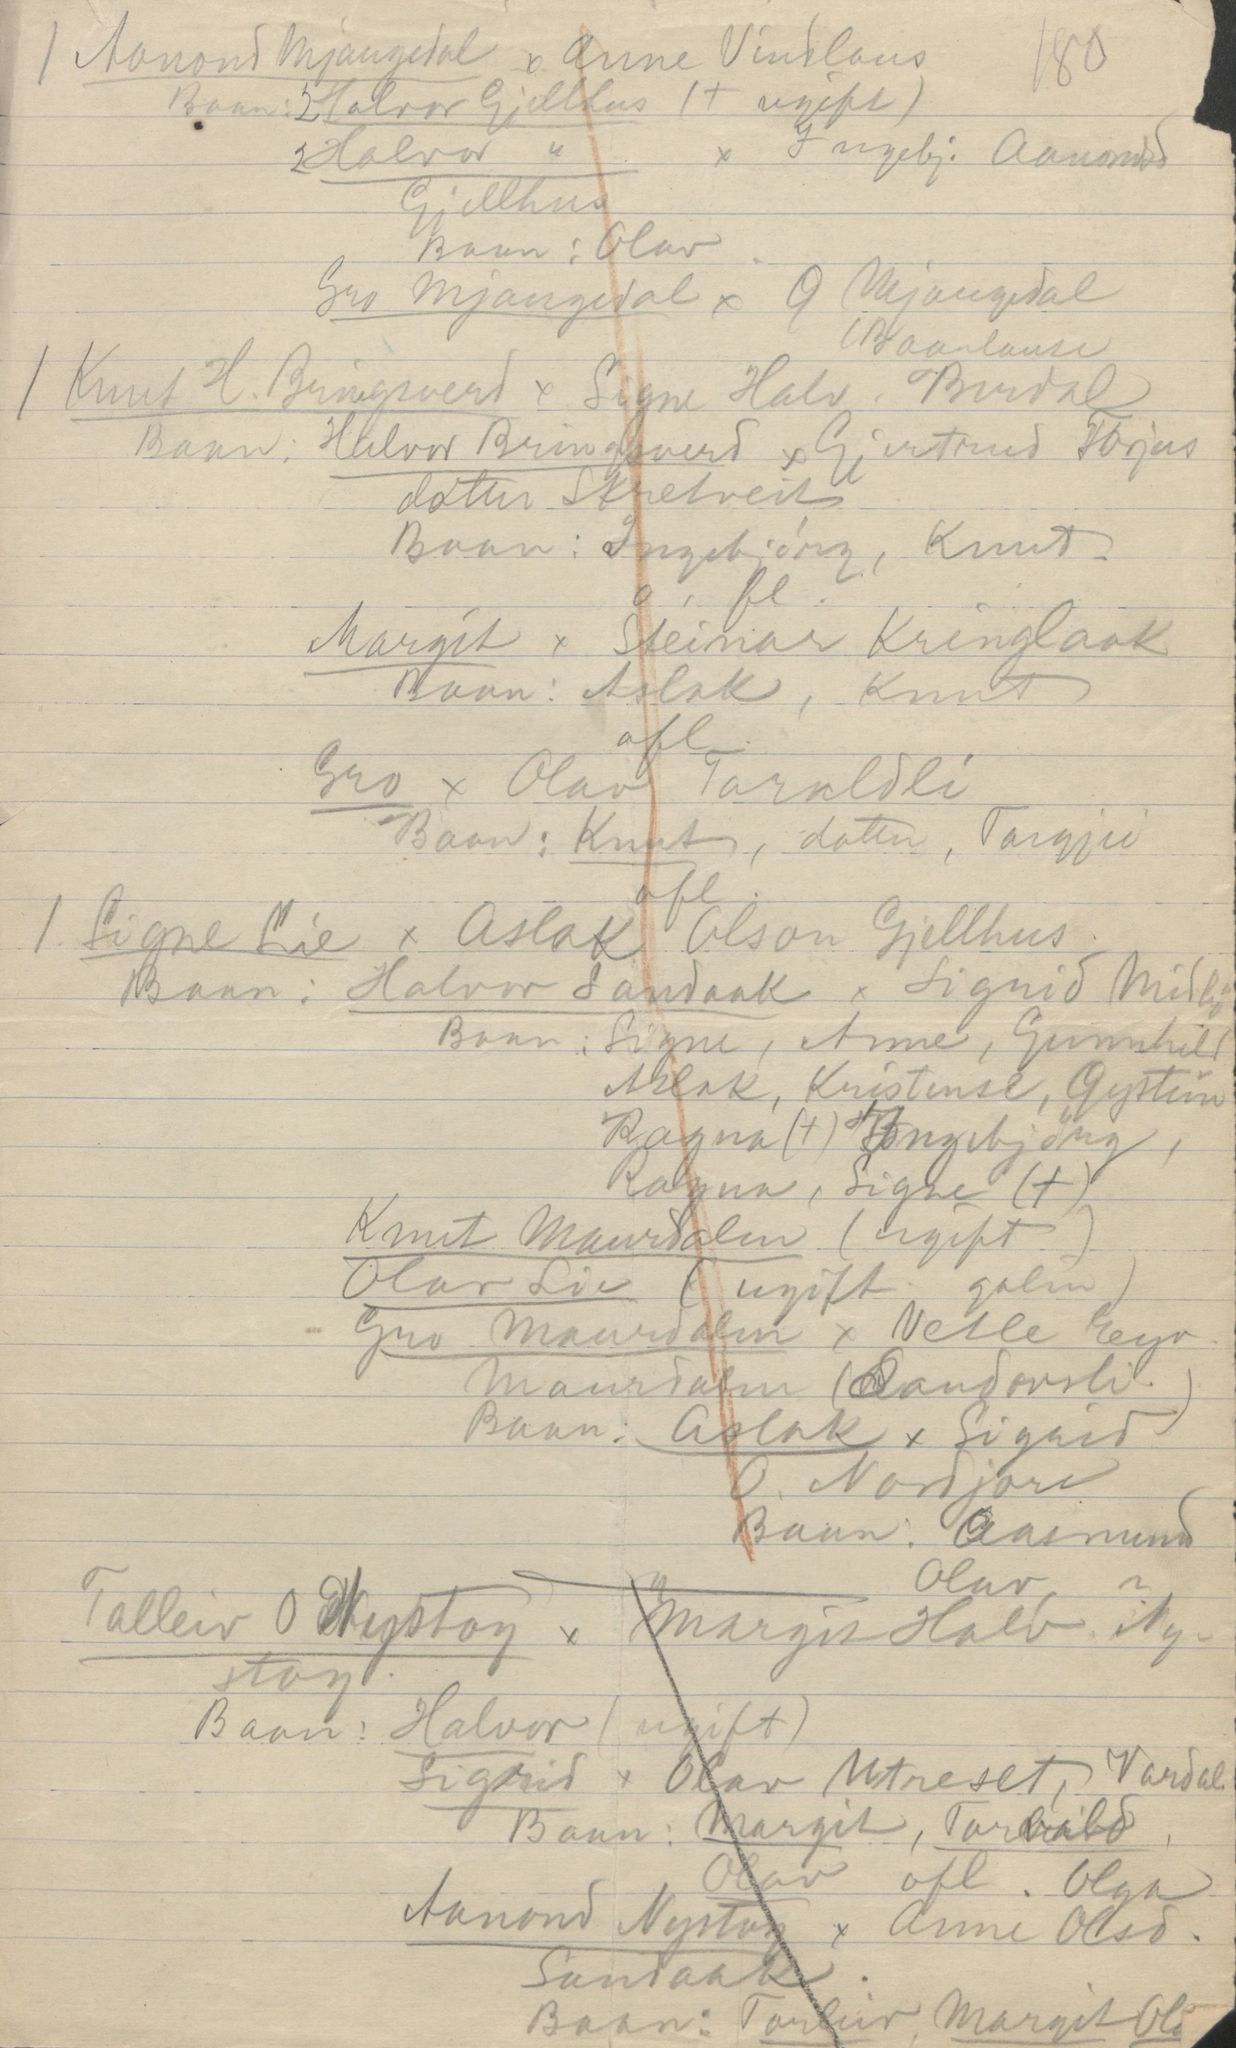 180
1 Aanond Mjaugedal x Anne Vindlaus
Baan: 2 Halvor Gjellhus (+ ugift)
2 Halvor " x Ingebj. Aanonsd
Gjellhus
Baan: Olav
Gro Mjaugedal x O Mjaugedal
(Baanlause
1 Knut H. Bringsverd x Signe Halv. Burdal
Baan: Halvor Bringsverd x Gjertrud Torjus
dotter Skretveit
Baan: Ingebjörg, Knut
o. fl.
Margit x Steinar Kringlaak
Baan: Aslak, Knut
ofl.
Gro x Olav Taraldli
Baan: Knut, dotter, Targjei
ofl.
1. Signe Lie x Aslak Olson Gjellhus.
Baan: Halvor Sandaak x Sigrid
Baan: Signe, Anne, Gunnhild
Aslak, Kristense, Öystein
Ragna (+) Ingebjörg,
Ragna, Signe (+)
Knut Maurdalen (ugift)
Olav Lie (ugift galen)
Gro Maurdalen x Vetle Eyv.
Maurdalen (Sandovsli.)
Baan: Aslak x Sigrid
O. Nordjore
Baan: Aasmund
Olav
Talleiv O Nystoy x Margit Halv. Ny-
stoy.
Baan: Halvor (ugift)
Sigrid x Olav Utreset, Vardal
Baan: Margit,
Olav ofl. Olga
Aanond Nystoy x Anne Olsd.
Sandaak.
Baan: Tarleiv, Margit